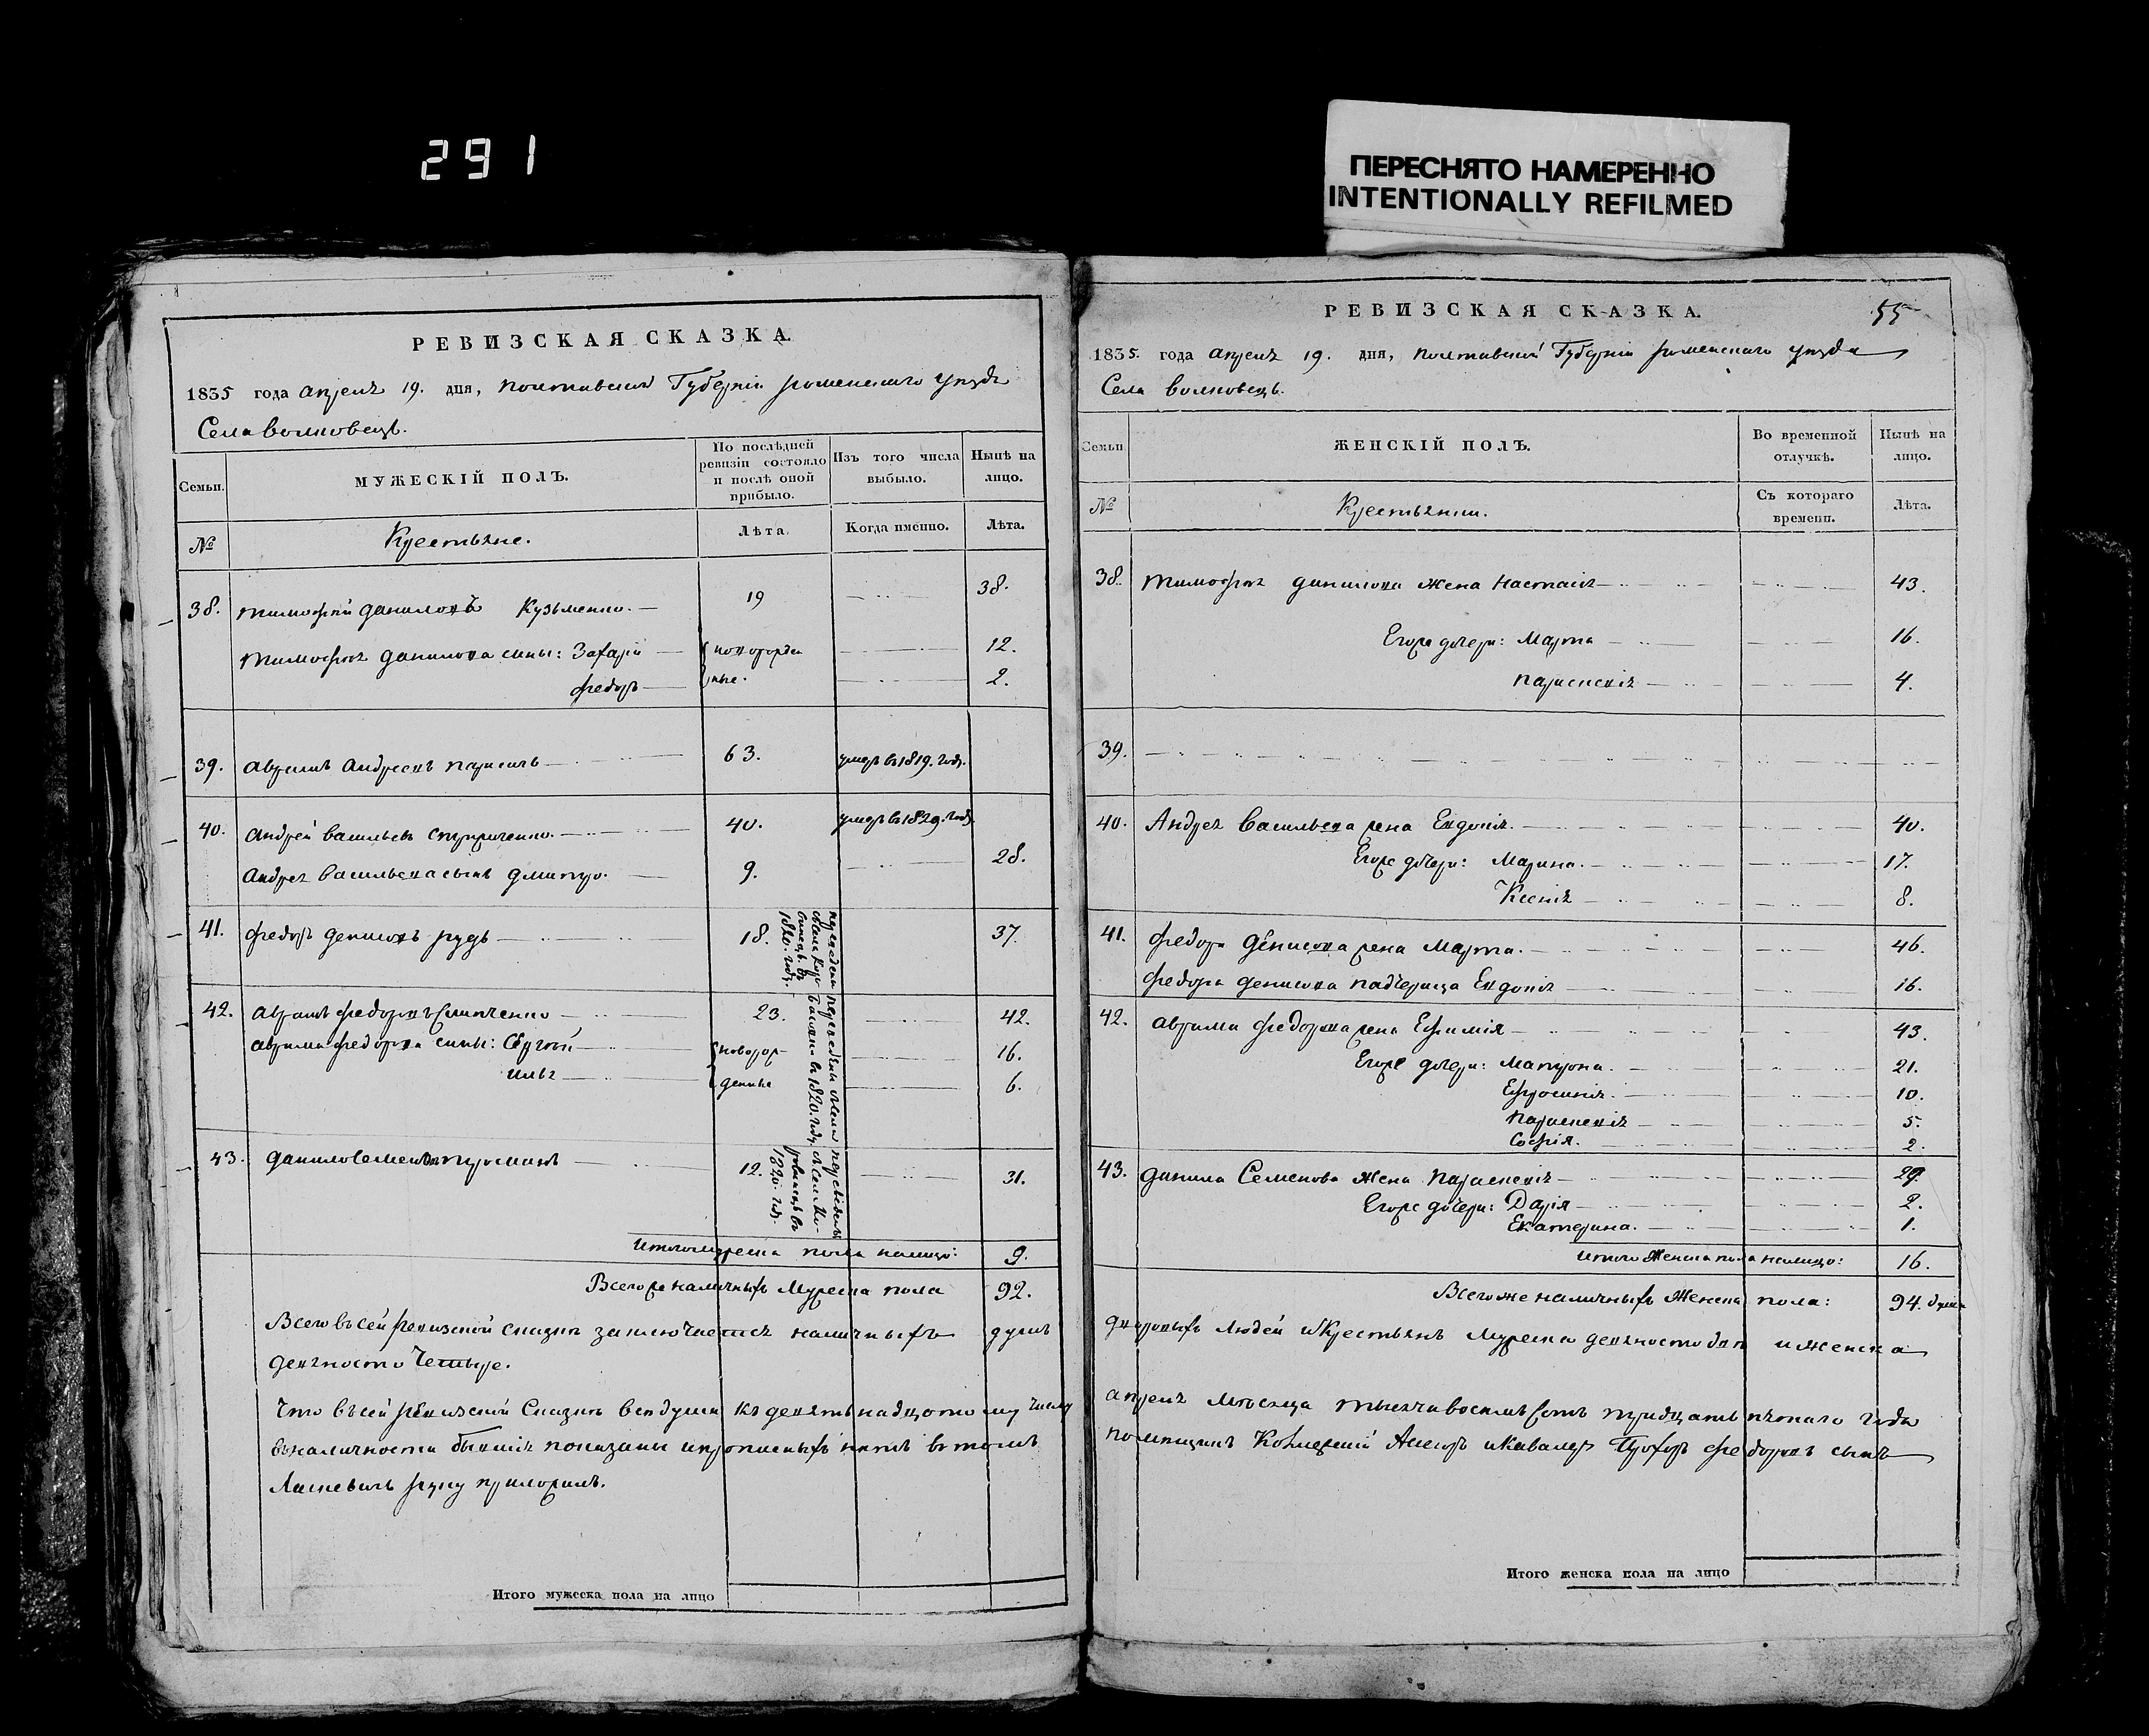 291
ПЕРЕСНЯТО НАМЕРЕННО
INTENTIONALLY REFILMED
РЕВИЗСКАЯ СКАЗКА.
1835 года апреля 19. дня, Полтавской Губерніи роменского уезда
Села волковецъ.
Семьи.
МУЖЕСКІЙ ПОЛЪ.
По послѣдней ревизіи состояло и послѣ оной прибыло.
Изъ того числа выбыло.
Нынѣ на лицо.
№
Крестьяне.
Лѣта.
Когда именно.
Лѣта.
38. тимофѣй даниловъ Кузьменко. 19 38.
тимофея данилова сыны: Захарій новорожде 12.
федоръ ные. 2.
39. аврамъ андреевъ 63. умеръ в 1819. году.
40. андрей васильевъ 40. умеръ в 1829. году.
андрея васильева сынъ дмитро. 9. 28.
41. федоръ денисовъ рудь 18. 37.
переведенъ
1820. году.
42. аврамъ федоровъ 23. 42.
аврама федорова сыны: новорож- 16.
илья дение 6.
в 1820. году.
43. данило Семеновъ 12. 31.
1820. году.
Итого мужеска пола налицо: 9.
Всего же наличныхъ Мужеска пола 92.
Всего въ сей ревизской сказкѣ заключается наличныхъ душъ
девяносто четыре.
Что въ сей ревизской Сказкѣ все души къ девятнадцатому числу
въ наличности бывшія показаны и прописныхъ нетъ в томъ
руку приложилъ.
Итого мужеска пола на лицо
РЕВИЗСКАЯ СКАЗКА.
55
1835. года апреля 19. дня, полтавской Губерніи роменскаго уезда
Села волковецъ.
Семьи.
ЖЕНСКІЙ ПОЛЪ.
Во временной отлучкѣ.
Нынѣ на лицо.
№
Крестьянки.
Съ котораго времени.
Лѣта.
38. тимофея данилова жена настасія 43.
Егоже дочери: Марта 16.
параскевія 4.
39.
40. Андрея васильева жена Евдокія. 40.
Егоже дочери: Марина. 17.
Ксенія 8.
41. федора денисова жена Марта. 46.
федора денисова падчерица Евдокія 16.
42. аврама федорова жена Ефимія 43.
Егоже дочери: Матрона. 21.
Ефросинія. 10.
параскевія 5.
Софія. 2.
43. данила Семенова жена параскевія 29.
Егоже дочери: Дарія 2.
Екатерина. 1.
Итого Женска пола налицо: 16.
Всего же наличныхъ Женска пола: 94. душа
дворовыхъ людей и крестьянъ мужеска девяностодве и женска
апреля месяца тысяча восемъ сотъ тридцать пятаго года
помещикъ Колежскій Асесоръ и кавалеръ федоровъ сынъ
Итого женска пола на лицо